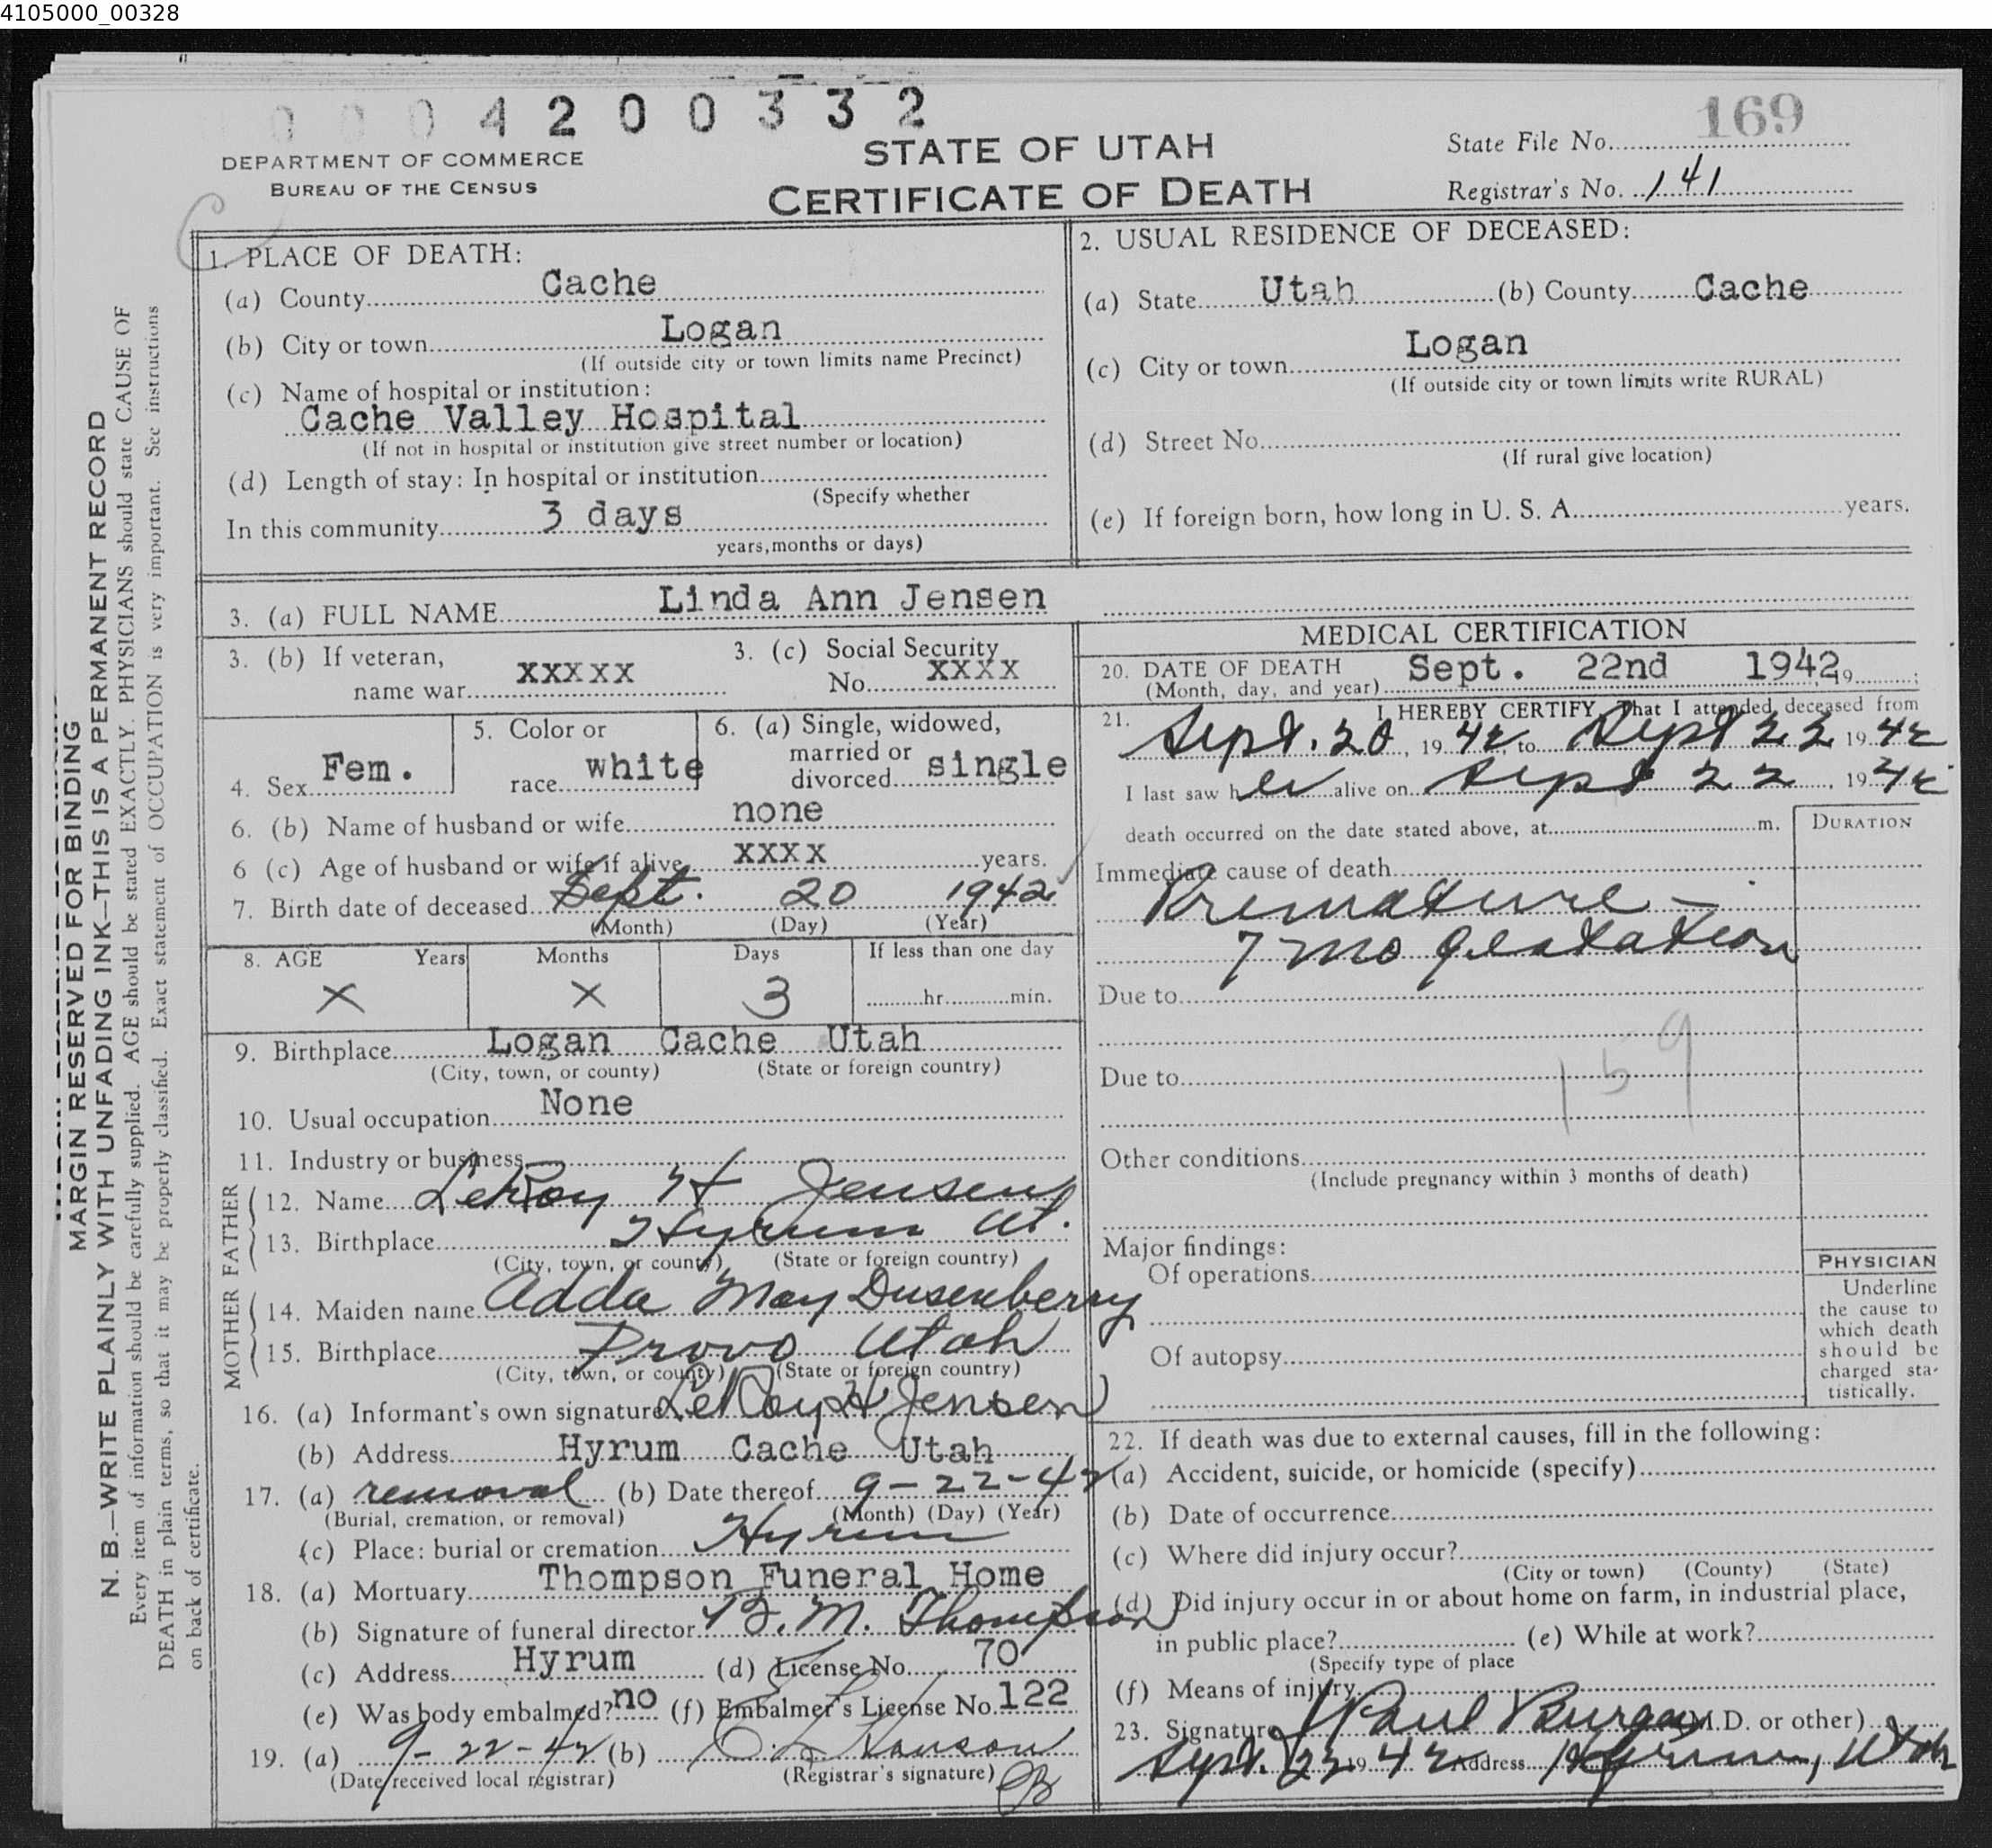 4105000_00328
0004200332
169
DEPARTMENT OF COMMERCE
BUREAU OF THE CENSUS
STATE OF UTAH
CERTIFICATE OF DEATH
State File No.
Registrar's No. 141
MARGIN RESERVED FOR BINDING
N. B.—WRITE PLAINLY WITH UNFADING INK—THIS IS A PERMANENT RECORD
Every item of information should be carefully supplied. AGE should be stated EXACTLY. PHYSICIANS should state CAUSE OF
DEATH in plain terms, so that it may be properly classified. Exact statement of OCCUPATION is very important. See instructions
on back of certificate.
1. PLACE OF DEATH:
(a) County Cache
(b) City or town Logan
(If outside city or town limits name Precinct)
(c) Name of hospital or institution:
Cache Valley Hospital
(If not in hospital or institution give street number or location)
(d) Length of stay: In hospital or institution
(Specify whether
In this community 3 days
years, months or days)
2. USUAL RESIDENCE OF DECEASED:
(a) State Utah (b) County Cache
(c) City or town Logan
(If outside city or town limits write RURAL)
(d) Street No.
(If rural give location)
(e) If foreign born, how long in U. S. A. years.
3. (a) FULL NAME Linda Ann Jensen
3. (b) If veteran,
name war XXXXX
3. (c) Social Security
No. XXXX
4. Sex Fem.
5. Color or
race white
6. (a) Single, widowed,
married or
divorced single
6. (b) Name of husband or wife none
6 (c) Age of husband or wife if alive XXXX years.
7. Birth date of deceased Sept. 20 1942
(Month) (Day) (Year)
8. AGE Years Months Days If less than one day
X X 3 hr. min.
9. Birthplace Logan Cache Utah
(City, town, or county) (State or foreign country)
10. Usual occupation None
11. Industry or business
FATHER
12. Name LeRoy H Jensen
13. Birthplace Hyrum Ut.
(City, town, or county) (State or foreign country)
MOTHER
14. Maiden name Adda May Dusenberry
15. Birthplace Provo Utah
(City, town, or county) (State or foreign country)
16. (a) Informant's own signature LeRoy H Jensen
(b) Address Hyrum Cache Utah
17. (a) removal (b) Date thereof 9-22-42
(Burial, cremation, or removal) (Month) (Day) (Year)
(c) Place: burial or cremation Hyrum
18. (a) Mortuary Thompson Funeral Home
(b) Signature of funeral director B. M. Thompson
(c) Address Hyrum (d) License No. 70
(e) Was body embalmed? no (f) Embalmer's License No. 122
19. (a) 9-22-42 (b) Hanson
(Date received local registrar) (Registrar's signature)
MEDICAL CERTIFICATION
20. DATE OF DEATH Sept. 22nd 1942 19 ;
(Month, day, and year)
21. I HEREBY CERTIFY, That I attended deceased from
Sept. 20, 1942 to Sept 22 1942
I last saw her alive on Sept 22, 1942
death occurred on the date stated above, at m.
DURATION
Immediate cause of death
Premature -
7 mo gestation
Due to
159
Due to
Other conditions
(Include pregnancy within 3 months of death)
Major findings:
Of operations
Of autopsy
PHYSICIAN
Underline
the cause to
which death
should be
charged sta-
tistically.
22. If death was due to external causes, fill in the following:
(a) Accident, suicide, or homicide (specify)
(b) Date of occurrence
(c) Where did injury occur?
(City or town) (County) (State)
(d) Did injury occur in or about home on farm, in industrial place,
in public place? (e) While at work?
(Specify type of place
(f) Means of injury
23. Signature J Paul Burgess (M.D. or other)
Sept. 22 1942 Address Hyrum, Utah